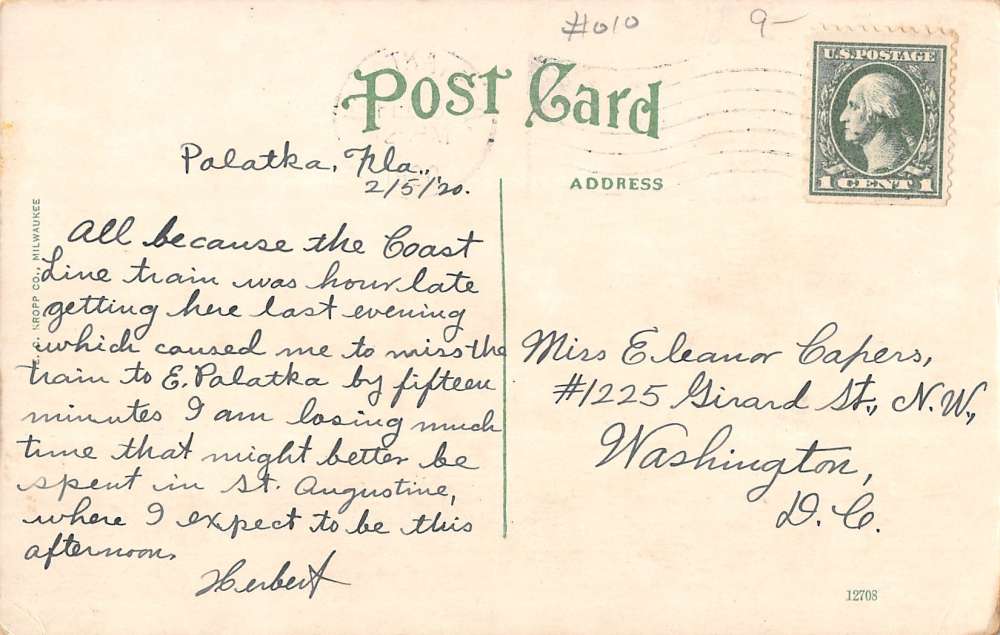 #010
9-
U.S. POSTAGE
1 CENT 1
Post Card
ADDRESS
Palatka, Fla.,
2/5/'20.
All because the Coast
Line train was hour late
getting here last evening
which caused me to miss the
train to E. Palatka by fifteen
minutes I am losing much
time that might better be
spent in St. Augustine,
where I expect to be this
afternoon.
Herbert
Miss Eleanor Capers,
#1225 Girard St., N.W.,
Washington,
D.C.
KROPP CO., MILWAUKEE
12708